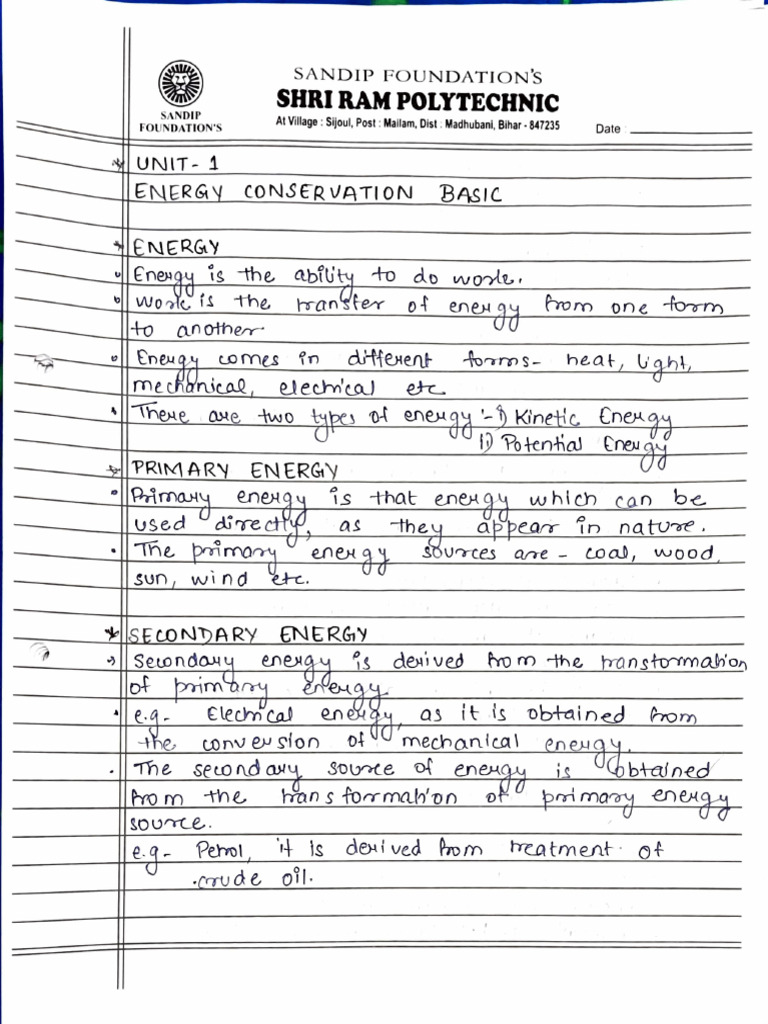 SANDIP FOUNDATION'S
SHRI RAM POLYTECHNIC
SANDIP
FOUNDATION'S
At Village : Sijoul, Post : Mailam, Dist : Madhubani, Bihar - 847235
Date :
UNIT - 1
ENERGY CONSERVATION BASIC
ENERGY
Energy is the ability to do work.
Work is the transfer of energy from one form
to another.
Energy comes in different forms- heat, light,
mechanical, electrical etc
There are two types of energy :- i) Kinetic Energy
ii) Potential Energy
PRIMARY ENERGY
Primary energy is that energy which can be
used directly, as they appear in nature.
The primary energy sources are - coal, wood,
sun, wind etc.
SECONDARY ENERGY
Secondary energy is derived from the transformation
of primary energy.
e.g- Electrical energy, as it is obtained from
the conversion of mechanical energy.
The secondary source of energy is obtained
from the transformation of primary energy
source.
e.g- Petrol, it is derived from treatment of
crude oil.